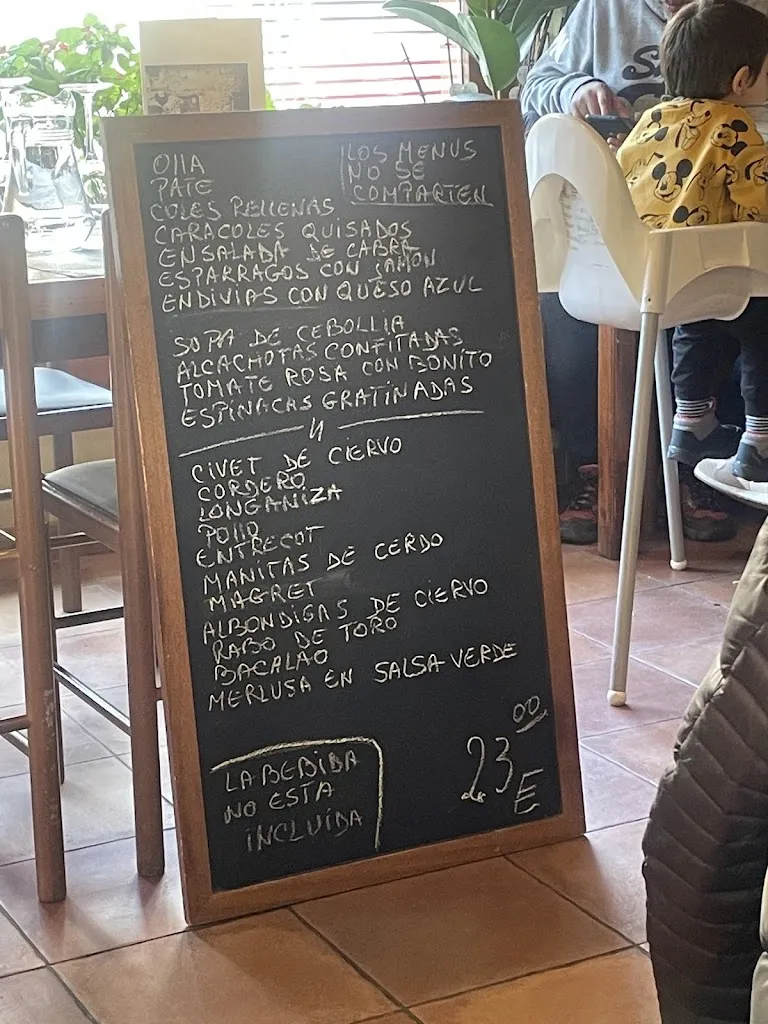 OllA
PATE
COLES RELLENAS
CARACOLES GUISADOS
ENSALADA DE CABRA
ESPARRAGOS CON JAMON
ENDIVIAS CON QUESO AZUL
LOS MENUS
NO SE
COMPARTEN
SOPA DE CEBOLLIA
ALCACHOTAS CONFITADAS
TOMATE ROSA CON BONITO
ESPINACAS GRATINADAS
CIVET DE CIERVO
CORDERO
LONGANIZA
POllO
ENTRECOT
MANITAS DE CERDO
MAGRET
ALBONDIGAS DE CIERVO
RABO DE TORO
BACALAO
MERLUSA EN SALSA VERDE
23 00 E
LA BEBIBA
NO ESTA
INCLUÍDA